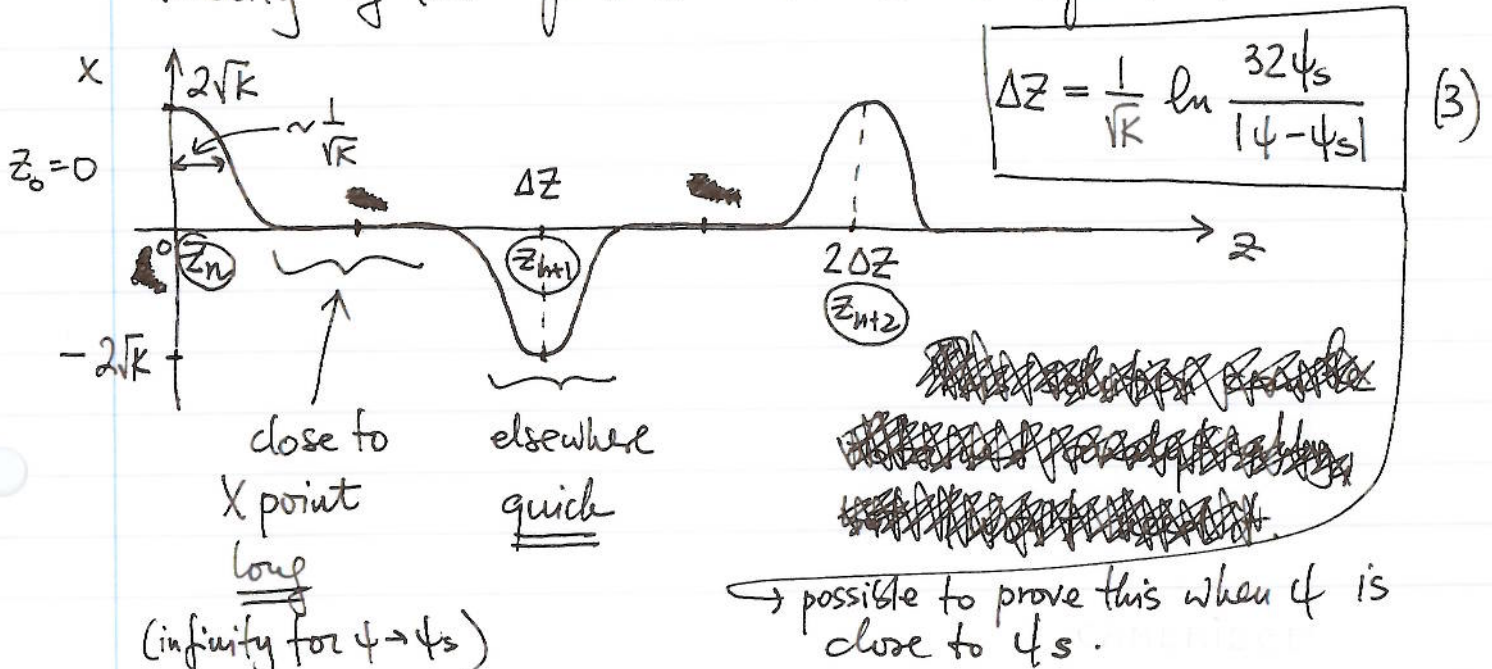 X
2√K
~ 1/√K
Z₀=0
ΔZ
ΔZ = 1/√K ln 32ψs/|ψ-ψs|
(3)
0
Zn
Zn+1
2ΔZ
Zn+2
Z
-2√K
close to
X point
long
(infinity for ψ→ψs)
elsewhere
quick
↳ possible to prove this when ψ is
close to ψs.